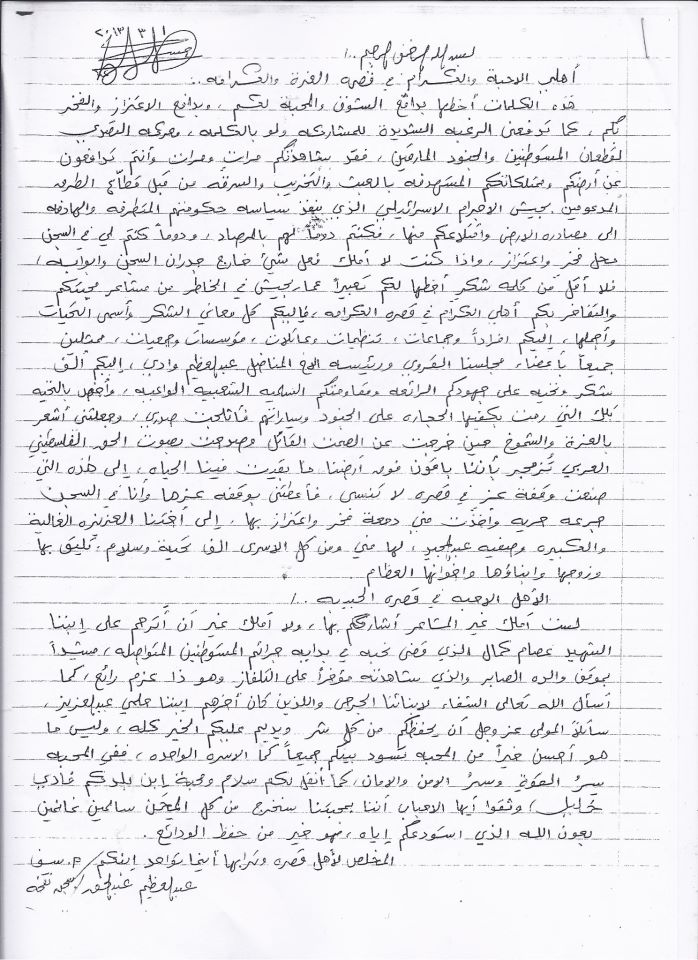 ٢٠١٣/٣/١
بسم الله الرحمن الرحيم ١.
أهلي الاحبة والكرام في قصره العزة والكرامه ..
هذه الكلمات أخطها بدافع الشوق والمحبة لكم ، وبدافع الاعتزاز والفخر
بكم ، كما تدفعني الرغبه الشديدة للمشاركه ولو بالكلمه ، ومعركه التصدي
لقطعان المستوطنين والجنود المارقين ، فقد شاهدتكم مرات ومرات وأنتم تدافعون
عن أرضكم وممتلكاتكم المستهدفه بالعبث والتخريب والسرقه من قبل قطاع الطرق
المدعومين بجيش الاجرام الاسرائيلي الذي ينفذ سياسه حكومتهم المتطرفه والهادفه
الى مصادره الارض واقتلاعكم منها ، فكنتم دوماً لهم بالمرصاد ، ودوماً كنتم لي في السجن
محل فخر واعتزاز ، واذا كنت لا أملك فعل شيئ خارج جدران السجن وابوابه ،
فلا أقل من كلمه شكر أخطها لكم تعبيراً عما يجيش في الخاطر من مشاعر محبتكم
والتفاخر بكم أهلي الكرام في قصره الكرامه ، فإليكم كل معاني الشكر وأسمى التحيات
وأجملها ، إليكم افراداً وجماعات ، تنظيمات وعائلات ، مؤسسات وجمعيات ، ممثلين
جميعاً بأعضاء مجلسنا القروي ورئيسه الاخ المناضل عبدالعظيم وادي ، إليكم ألف
شكر وتحيه على جهودكم الرائعه ومقاومتكم السلميه الشعبية الواعيه ، وأخص بالتحيه
تلك التي رمت بكفيها الحجاره على الجنود وسياراتهم فأثلجت صدري ، وجعلتني أشعر
بالعزة والشموخ حين خرجت عن الصمت القاتل وصدحت بصوت الحق الفلسطيني
العربي تزمجر بأننا باقون فوق أرضنا ما بقيت فينا الحياه ، إلى هذه التي
صنعت وقفة عز في قصره لا تنسى ، فأعطتني بوقفه عزها وأنا في السجن
جرعه حريه وأخذت مني دمعة فخر واعتزاز بها ، إلى أختنا العزيزه الغالية
والكبيره وصفيه عبدالمجيد ، لها مني ومن كل الاسرى الف تحية وسلام ، تليق بها
وزوجها وابناؤها واخوانها العظام .
الأهل الاحبه في قصره الحبيبه ١..
لست أملك غير المشاعر أشارككم بها ، ولا أملك غير أن أترحم على إبننا
الشهيد عصام كمال الذي قضى نحبه في بدايه جرائم المستوطنين المتواصله ، مشيداً
بموقف والده الصابر والذي شاهدته مؤخراً على التلفاز وهو ذا عزم رائع ، كما
أسأل الله تعالى الشفاء لابنائنا الجرحى واللذين كان أخرهم ابننا حلمي عبدالعزيز ،
سائلاً المولى عز وجل أن يحفظكم من كل شر ويديم عليكم الخير كله ، وليس ما
هو أحسن خيراً من المحبه تسود بينكم جميعاً كما الاسره الواحده ، ففي المحبه
سِرُّ القوة وسِرُّ الامن والامان ، كما أنقل لكم سلام ومحبة إبن بلدكم فادي
خليل ، وثقوا أيها الاحباب أننا بمحبتنا سنخرج من كل المحن سالمين غانمين
بعون الله الذي استودعكم إياه ، فهو خير من حفظ الودائع .
المخلص لأهل قصره وترابها أينما تواجد إبنكم
عبدالعظيم عبدالحق / سجن نفحه